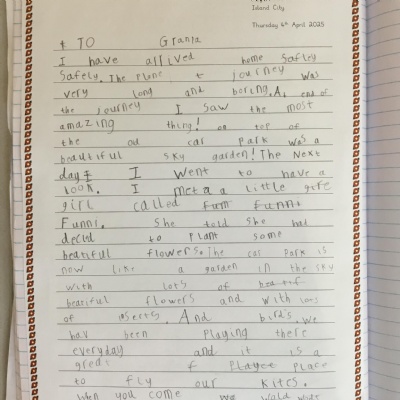 Island City
Thursday 4th April 2025
TO Grania
I have arrived home Safley
Safely. The Plane t journey was
very long and boring. At end of
the journey I saw the most
amazing thing! on top of
the old car park was a
beautiful sky garden! The Next
day I I went to have a
look. I met a a little gire
girl called Funn Funni
Funni. She told She had
decid to plant some
beatiful flowers. The car park is
now like a garden in the sky
with lots of beatif
beatiful flowers and with lots
of And birds. We
hav been Playing there
everyday and it is a
great f Playce Place
to fly our kites.
When you come we